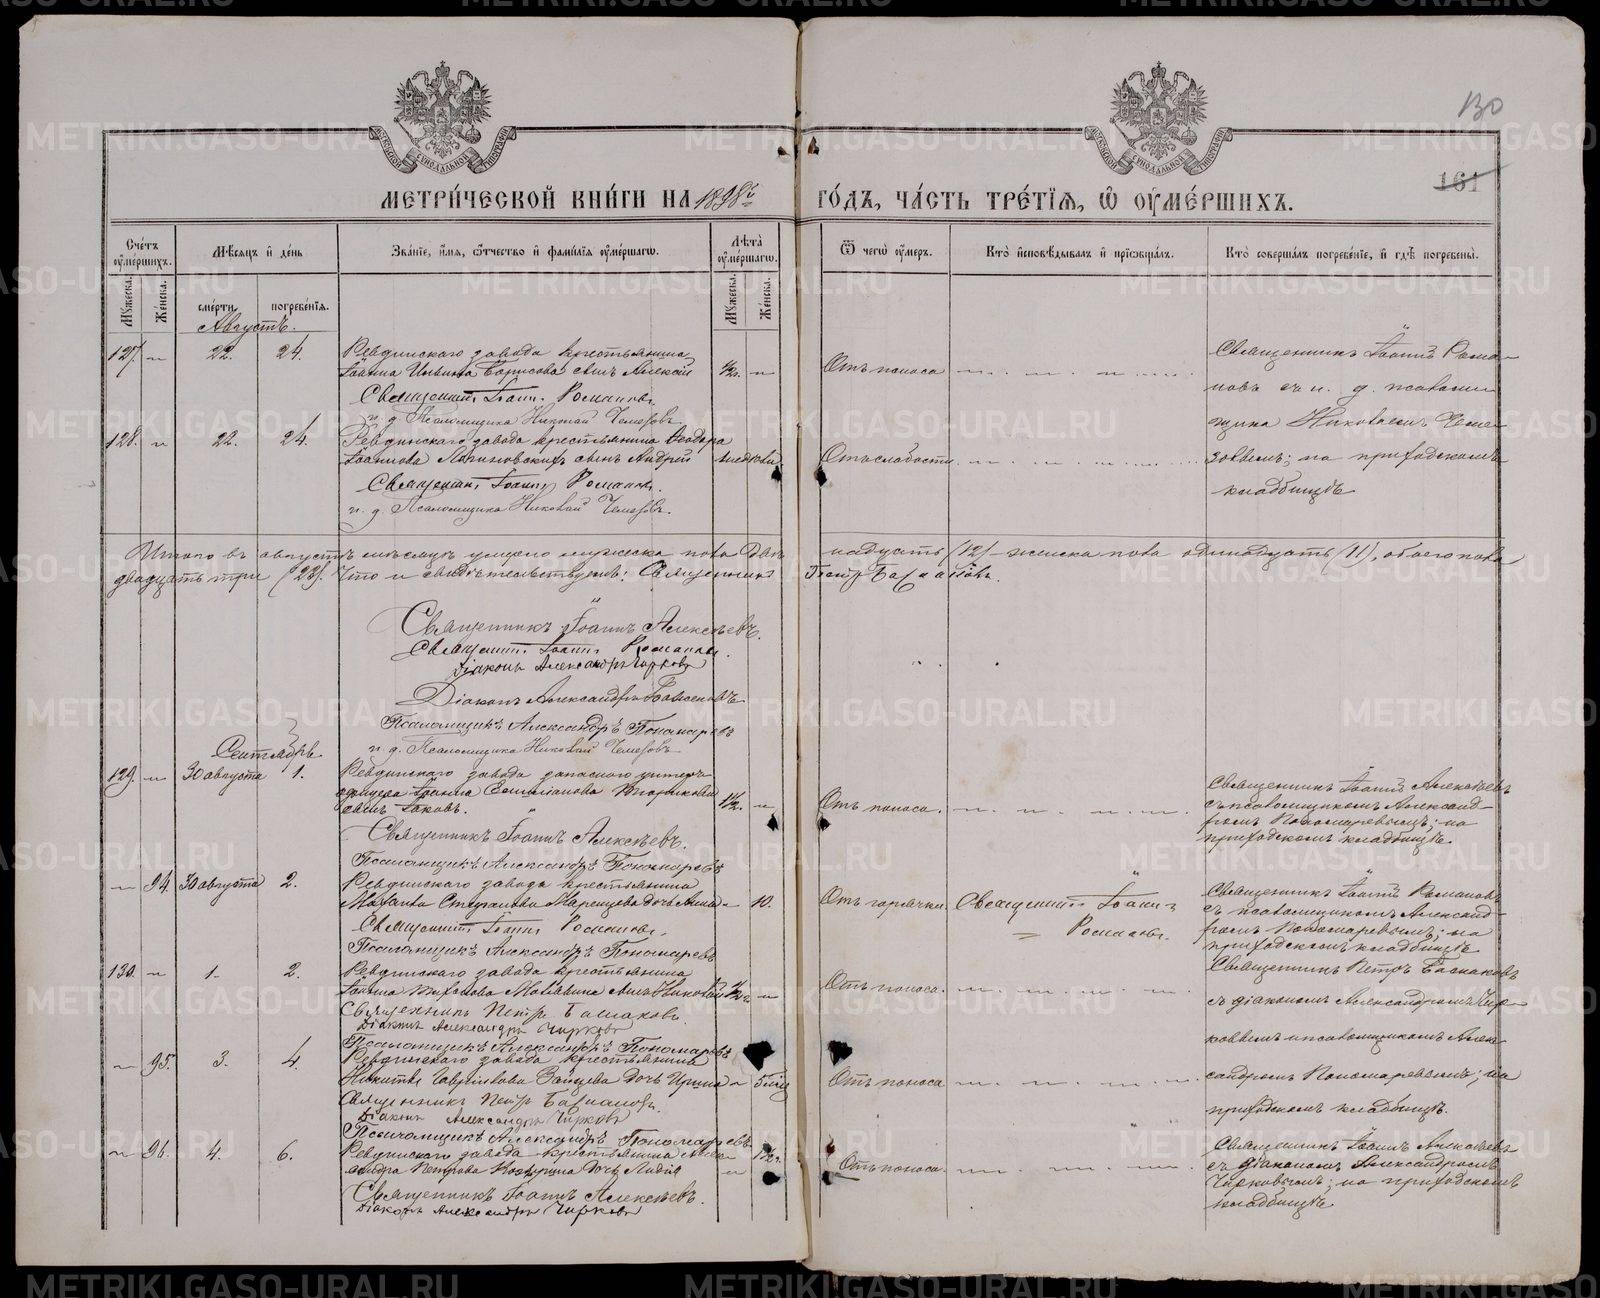 130
161
МЕТРИЧЕСКОЙ КНИГИ НА 1898й ГОДЪ, ЧАСТЬ ТРЕТІЯ, Ѽ ОУМЕРШИХЪ.
Счетъ оумершихъ.
Мѣсяцъ и день
Званіе, имя, отчество и фамилія оумершагѡ.
Лѣта оумершагѡ.
Ѿ чегѡ оумеръ.
Кто исповѣдывалъ и пріѡбщалъ.
Кто совершалъ погребеніе, и гдѣ погребены.
Мужеска.
Женска.
смерти.
погребенія.
Мужеска.
Женска.
Августъ.
127. „ 22. 24. Ревдинскаго завода крестьянина
Іоанна Ильина Борисова сынъ Алексѣй ½г. „ Отъ поноса
Священникъ Іоаннъ Романовъ
и. д. Псаломщика Николай Чемезовъ
Священникъ Іоаннъ Рома-
новъ съ и. д. псалом-
щика Николаемъ Чеме-
зовымъ; на приходскомъ
кладбищѣ
128. „ 22. 24. Ревдинскаго завода крестьянина Ѳеодора
Іоаннова Логиновскихъ сынъ Андрей Отъ слабости
Священникъ Іоаннъ Романовъ.
и. д. Псаломщика Николай Чемезовъ.
Итого въ августѣ мѣсяцѣ умерло мужеска пола двѣ-надцать (12) женска пола одинадцать (11), обоего пола
двадцать три (23). Что и свидѣтельствуемъ: Священникъ Петръ Басмановъ.
Священникъ Іоаннъ Алексѣевъ.
Священникъ Іоаннъ Романовъ.
Діаконъ Александръ Чирковъ
Діаконъ Александръ Баженовъ.
Псаломщикъ Александръ Пономаревъ
и. д. Псаломщика Николай Чемезовъ
Сентябрь
129. „ 30 августа 1. Ревдинскаго завода запаснаго унтеръ-
офицера Іоанна
сынъ Іаковъ. 1½. „ Отъ поноса.
Священникъ Іоаннъ Алексѣевъ.
Псаломщикъ Александръ Пономаревъ
Священникъ Іоаннъ Алексѣевъ
съ псаломщикомъ Александ-
ромъ Пономаревымъ; на
приходскомъ кладбищѣ.
„ 94. 30 августа 2. Ревдинскаго завода крестьянина
Стефанова дочь Анна „ 10. Отъ горячки. Священникъ Іоаннъ
Романовъ.
Священникъ Іоаннъ Романовъ.
Псаломщикъ Александръ Пономаревъ
Священникъ Іоаннъ Романовъ
съ псаломщикомъ Александ-
ромъ Пономаревымъ; на
приходскомъ кладбищѣ
130. „ 1. 2. Ревдинскаго завода крестьянина
Іоанна сынъ Николай ½г. „ Отъ поноса.
Священникъ Петръ Басмановъ.
Діаконъ Александръ Чирковъ
Псаломщикъ Александръ Пономаревъ
Священникъ Петръ Басмановъ
съ діакономъ Александромъ Чир-
ковымъ и псаломщикомъ Алек-
сандромъ Пономаревымъ; на
приходскомъ кладбищѣ.
„ 95. 3. 4. Ревдинскаго завода крестьянина
Никиты Гаврилова Зайцева дочь Ирина „ Отъ поноса
Священникъ Петръ Басмановъ.
Діаконъ Александръ Чирковъ
Псаломщикъ Александръ Пономаревъ.
„ 96. 4. 6. Ревдинскаго завода крестьянина Алек-
сандра Петрова дочь Лидія „ Отъ поноса.
Священникъ Іоаннъ Алексѣевъ.
Діаконъ Александръ Чирковъ
Священникъ Іоаннъ Алексѣевъ
съ діакономъ Александромъ
Чирковымъ; на приходскомъ
кладбищѣ
METRIKI.GASO-URAL.RU